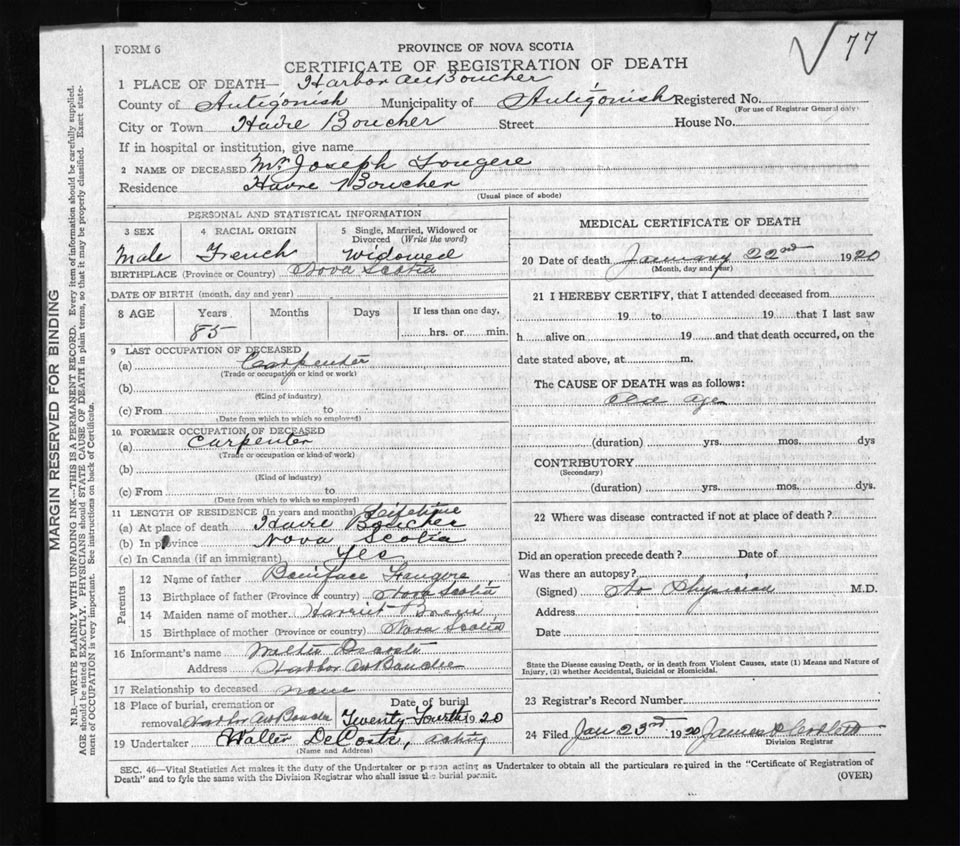 77
FORM 6
PROVINCE OF NOVA SCOTIA
CERTIFICATE OF REGISTRATION OF DEATH
1 PLACE OF DEATH— Harbor Au Boucher
County of Antigonish Municipality of Antigonish Registered No.
(For use of Registrar General only)
City or Town Havre Boucher Street House No.
If in hospital or institution, give name
2 NAME OF DECEASED Mr Joseph Fougere
Residence Havre Boucher
(Usual place of abode)
PERSONAL AND STATISTICAL INFORMATION
3 SEX 4 RACIAL ORIGIN 5 Single, Married, Widowed or Divorced (Write the word)
Male French Widowed
BIRTHPLACE (Province or Country) Nova Scotia
DATE OF BIRTH (month, day and year)
8 AGE Years Months Days If less than one day,
85 hrs. or min.
9 LAST OCCUPATION OF DECEASED
(a) Carpenter
(Trade or occupation or kind or work)
(b)
(Kind of industry)
(c) From to
(Date from which to which so employed)
10 FORMER OCCUPATION OF DECEASED
(a) Carpenter
(Trade or occupation or kind of work)
(b)
(Kind of industry)
(c) From to
(Date from which to which so employed)
11 LENGTH OF RESIDENCE (In years and months) Lifetime
(a) At place of death Havre Boucher
(b) In province Nova Scotia
(c) In Canada (if an immigrant) Yes
Parents
12 Name of father Boniface Fougere
13 Birthplace of father (Province or country) Nova Scotia
14 Maiden name of mother Harriet
15 Birthplace of mother (Province or country) Nova Scotia
16 Informant's name Walter Decoste
Address Harbor Au Bouche
17 Relationship to deceased none
18 Place of burial, cremation or Date of burial
removal Harbor Au Bouche Twenty Fourth 1920
19 Undertaker Walter DeCoste, acting
(Name and Address)
MEDICAL CERTIFICATE OF DEATH
20 Date of death January 22nd 1920
(Month, day and year)
21 I HEREBY CERTIFY, that I attended deceased from
19 to 19 that I last saw
h alive on 19 and that death occurred, on the
date stated above, at m.
The CAUSE OF DEATH was as follows:
Old Age
(duration) yrs. mos. dys
CONTRIBUTORY
(Secondary)
(duration) yrs. mos. dys.
22 Where was disease contracted if not at place of death?
Did an operation precede death? Date of
Was there an autopsy?
(Signed) No Physician M.D.
Address
Date
State the Disease causing Death, or in death from Violent Causes, state (1) Means and Nature of
Injury, (2) whether Accidental, Suicidal or Homicidal.
23 Registrar's Record Number
24 Filed Jan 23rd 1920 James D Corbett
Division Registrar
SEC. 46—Vital Statistics Act makes it the duty of the Undertaker or person acting as Undertaker to obtain all the particulars required in the "Certificate of Registration of
Death" and to fyle the same with the Division Registrar who shall issue the burial permit.
(OVER)
MARGIN RESERVED FOR BINDING
N.B.—WRITE PLAINLY WITH UNFADING INK—THIS IS A PERMANENT RECORD. Every item of information should be carefully supplied.
AGE should be stated EXACTLY. PHYSICIANS should STATE CAUSE OF DEATH in plain terms, so that it may be properly classified. Exact state-
ment of OCCUPATION is very important. See instructions on back of Certificate.